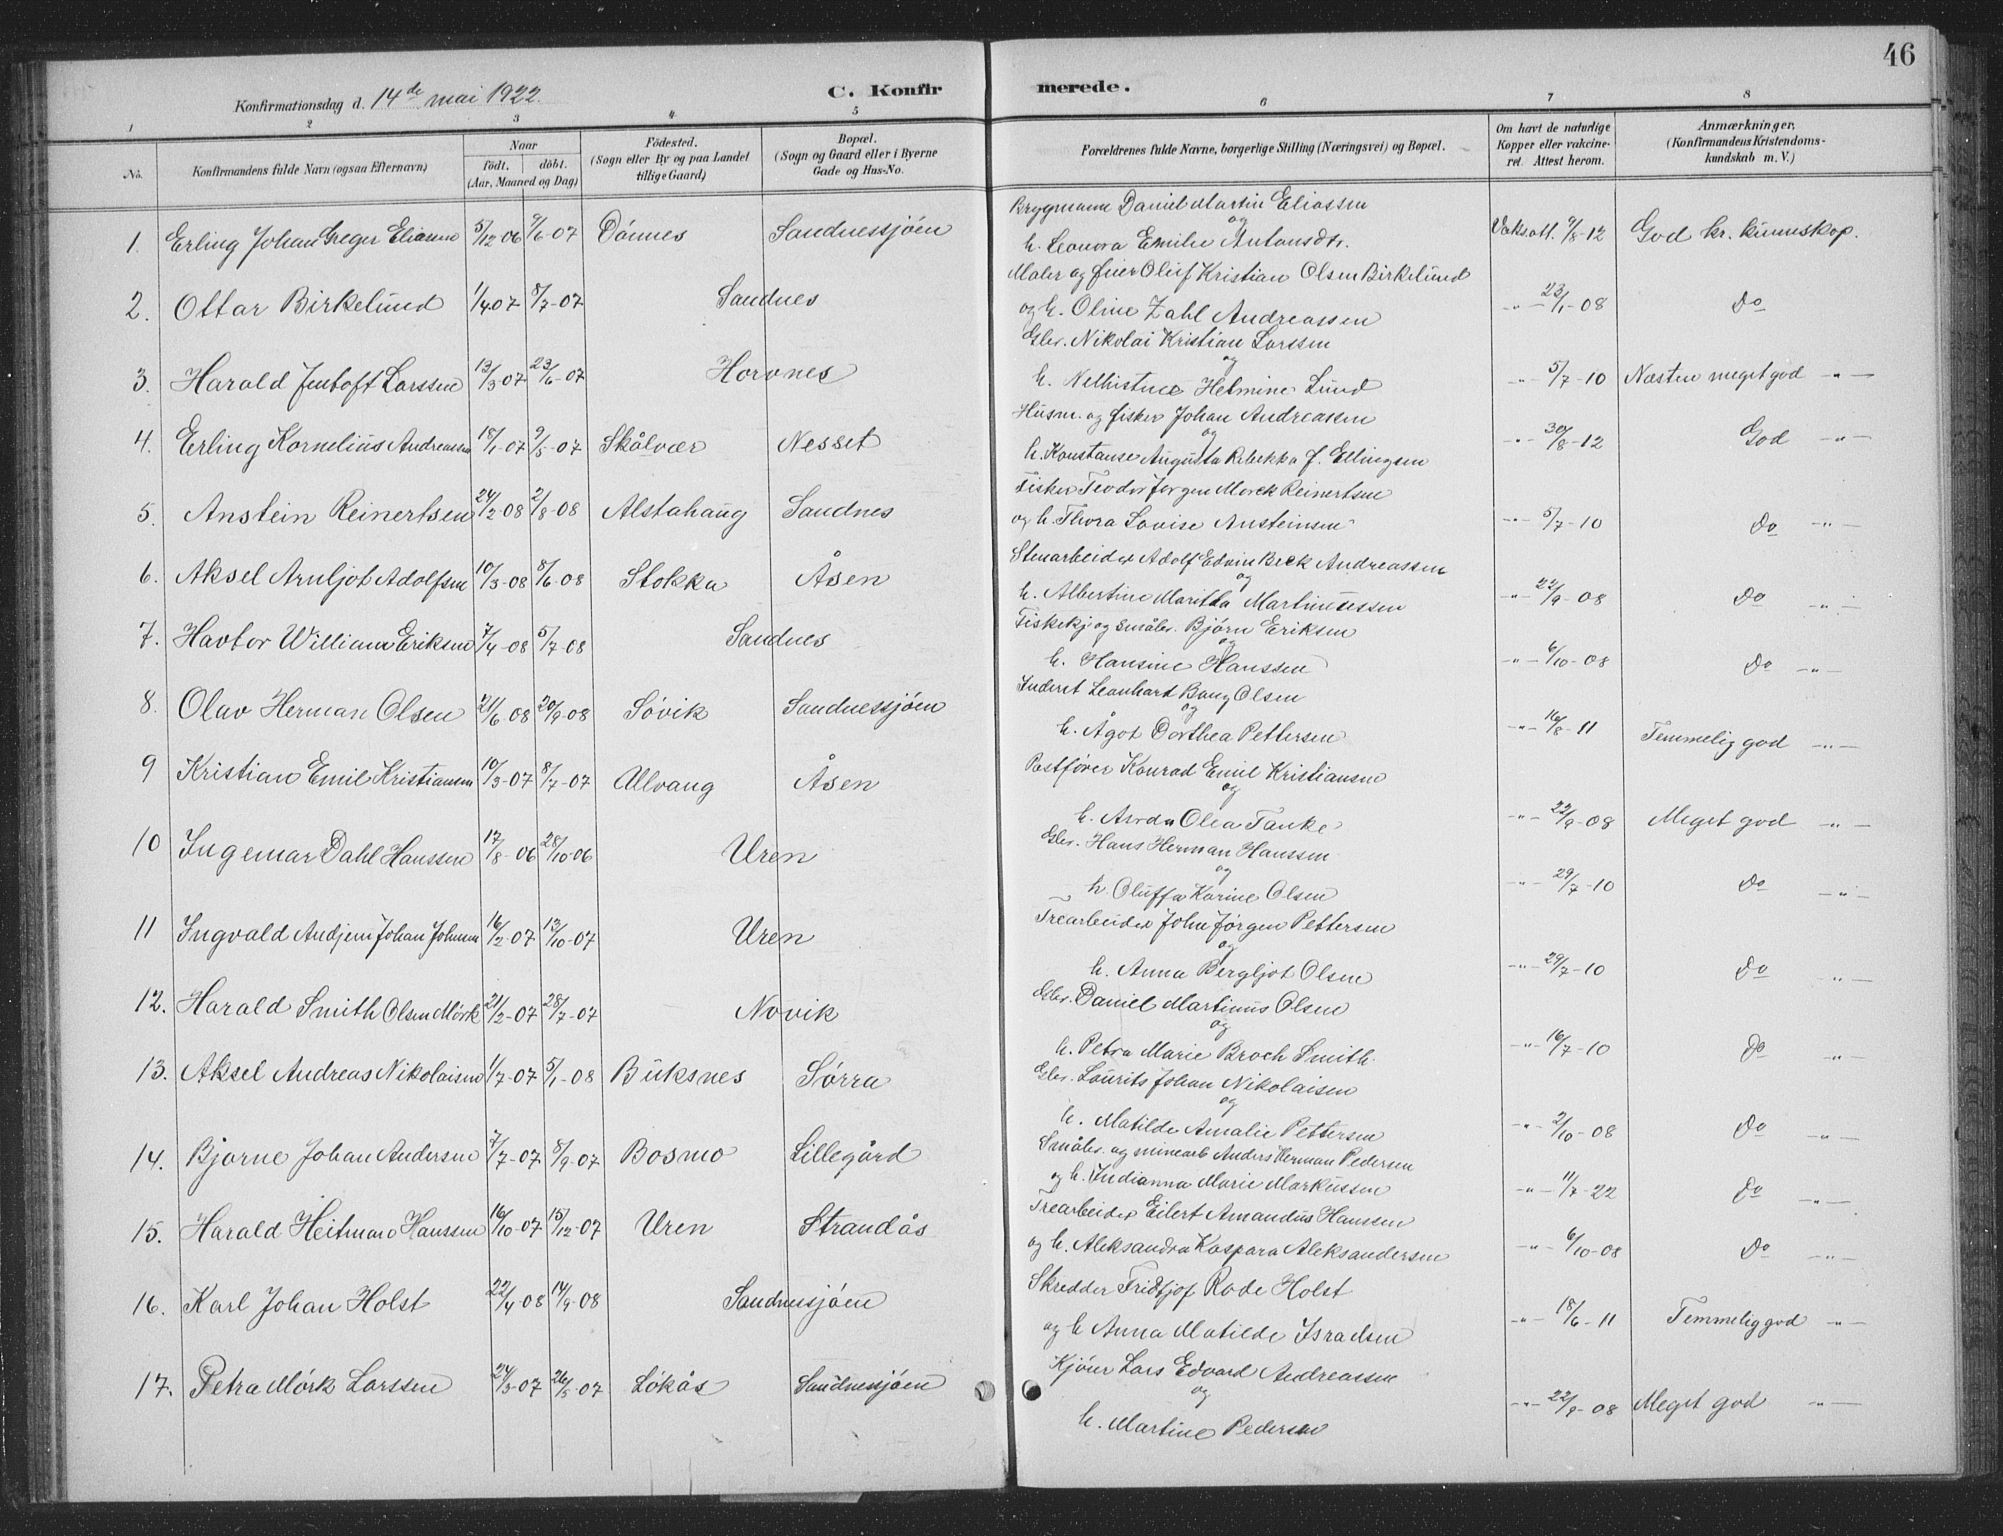 46
Konfirmationsdag d. 14de mai 1922.
C. Konfirmerede.
1 2 3 4 5 6 7 8
No. Konfirmandens fulde Navn (ogsaa Efternavn) Naar født. døbt. (Aar, Maaned og Dag) Fødested. (Sogn eller By og paa Landet tillige Gaard) Bopæl. (Sogn og Gaard eller i Byerne Gade og Hus-No. Forældrenes fulde Navne, borgerlige Stilling (Næringsvei) og Bopæl. Om havt de naturlige Kopper eller vakcineret. Attest herom. Anmærkninger. (Konfirmandens Kristendomskundskab m. V.)
1. Erling Johan Greger Eliassen 5/12-06 9/6-07 Dønnes Sandnessjøen Brygmann Daniel Martin Eliassen
og
h. Leonora Emilie Antonsdtr. Vaks.att. 9/8-12 God kr. kunnskap.
2. Ottar Birkelund 1/4 07 8/7-07 Sandnes Maler og feier Oluf Kristian Olsen Birkelund
og h. Oline Zahl Andreassen -"- 23/1-08 Do
3. Harald Jentoft Larssen 13/3-07 23/6-07 Horvnes Gbr. Nikolai Kristian Larssen
og
h. Helmine Lund -"- 5/7-10 Næsten meget god -"-
4. Erling Kornelius Andreassen 18/1-07 9/5-07 Skålvær Nesset Husm. og fisker Johan Andreassen
og
h. Konstanse Augusta Rebekka f. Ellingsen -"- 30/8-12 God -"-
5. Anstein Reinertsen 24/2-08 2/8-08 Alstahaug Sandnes Fisker Teodor Jørgen Mørck Reinertsen
og h. Thora Lovise Ansteinsen -"- 5/7-10 Do -"-
6. Aksel Arnljot Adolfsen 10/3-08 8/6-08 Stokka Åsen Stenarbeider Adolf Edvin Beck Andreassen
og
h. Albertine Maritta Martinussen -"- 22/9-08 Do -"-
7. Havtor William Eriksen 7/4-08 5/7-08 Sandnes Fiskekj og småbr. Bjørn Eriksen
og
h. Hansine Hanssen -"- 6/10-08 Do -"-
8. Olav Herman Olsen 21/6-08 20/9-08 Søvik Sandnessjøen Inderst Leonhart Bang Olsen
og
h. Ågot Dorthea Pettersen -"- 16/8-11 Temmelig god -"-
9 Kristian Emil Kristiansen 10/3-07 8/7-07 Allvang Åsen Postfører Konrad Emil Kristiansen
og
h. Olea Tanke -"- 22/9-08 Meget god -"-
10 Ingemar Dahl Hanssen 17/8-06 28/10-06 Uren Gbr. Hans Herman Hanssen
og
h. Oluffa Karine Olsen -"- 29/7-10 Do -"-
11 Ingvald Andjem Johan Johnsen 16/2-07 13/10-07 Uren Trearbeider John Jørgen Pettersen
og
h. Anna Bergljot Olsen -"- 29/7-10 Do -"-
12. Harald Smith Olsen Mørk 21/2-07 28/7-07 Novik Gbr. Daniel Martinus Olsen
og
h. Petra Marie Broch Smith. -"- 16/7-10 Do -"-
13. Aksel Andreas Nikolaisen 1/7-07 5/1-08 Buksnes Sørra Gbr. Laurits Johan Nikolaisen
og
h. Matilde Amalie Pettersen -"- 2/10-08 Do -"-
14. Bjarne Johan Andersen 7/7-07 8/9-07 Bosmo Lillegård Småbr. og minearb Anders Herman Pedersen
og h. Indianna Marie Markussen -"- 11/7-22 Do -"-
15. Harald Heitman Hanssen 16/10-07 15/12-07 Uren Strandås Trearbeider Eilert Amandus Hanssen
og h. Aleksandra Kaspara Aleksandersen -"- 6/10-08 Do -"-
16. Karl Johan Holst 22/4-08 14/9-08 Sandnessjøen Skredder Fridtjof Rode Holst
og h Anna Matilde Israelsen -"- 18/6-11 Temmelig god -"-
17. Petra Mørk Larssen 24/3-07 26/5-07 Løkås Sandnessjøen Kjøier Lars Edvard Andreassen
og
h. Martine Pedersen -"- 22/9-08 Meget god -"-